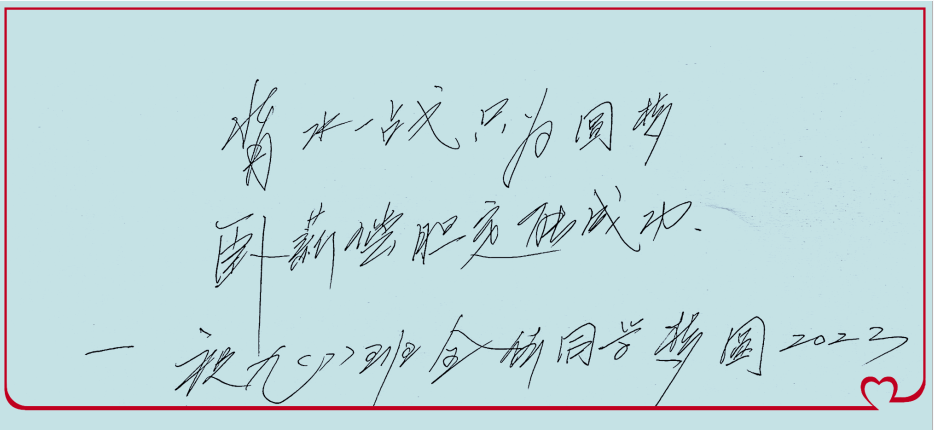 背水一战,只为圆梦
卧薪尝胆定能成功.
一祝九(1)班全体同学梦圆2022